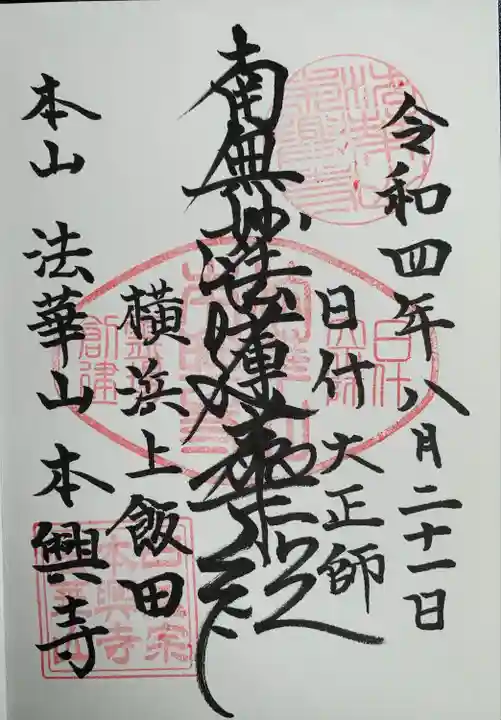 令和四年八月二十一日
日什大正師
南無妙法蓮華経
横浜上飯田
本山 法華山 本興寺
日什
創建